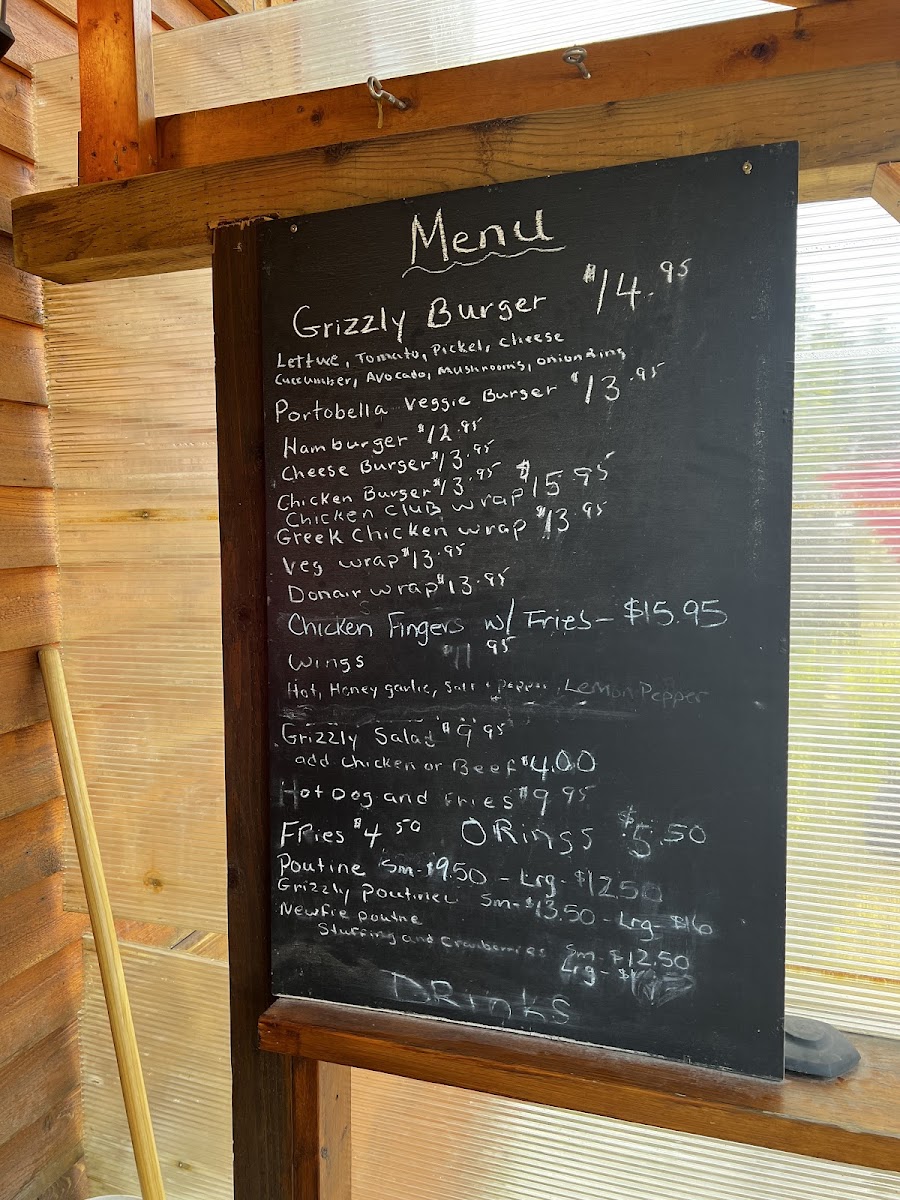 Menu
Grizzly Burger $14.95
Lettuce, Tomato, Pickel, Cheese
Cuccumber, Avocado, Mushrooms, onion Ring
Portobella Veggie Burger $13.95
Hamburger $12.95
Cheese Burger $13.95
Chicken Burger $13.95
Chicken Club wrap $15.95
Greek Chicken wrap $13.95
Veg wrap $13.95
Donair wrap $13.95
Chicken Fingers w/ Fries - $15.95
Wings $11.95
Hot, Honey garlic, Salt + pepper, Lemon Pepper
Grizzly Salad $9.95
add chicken or Beef $4.00
Hot Dog and Fries $9.95
Fries $4.50 O Rings $5.50
Poutine Sm-$9.50 - Lrg-$12.50
Grizzly poutine Sm-$13.50 - Lrg-$16
Newfie poutne
Stuffing and Cranberries Sm-$12.50
Lrg-$
DRinks